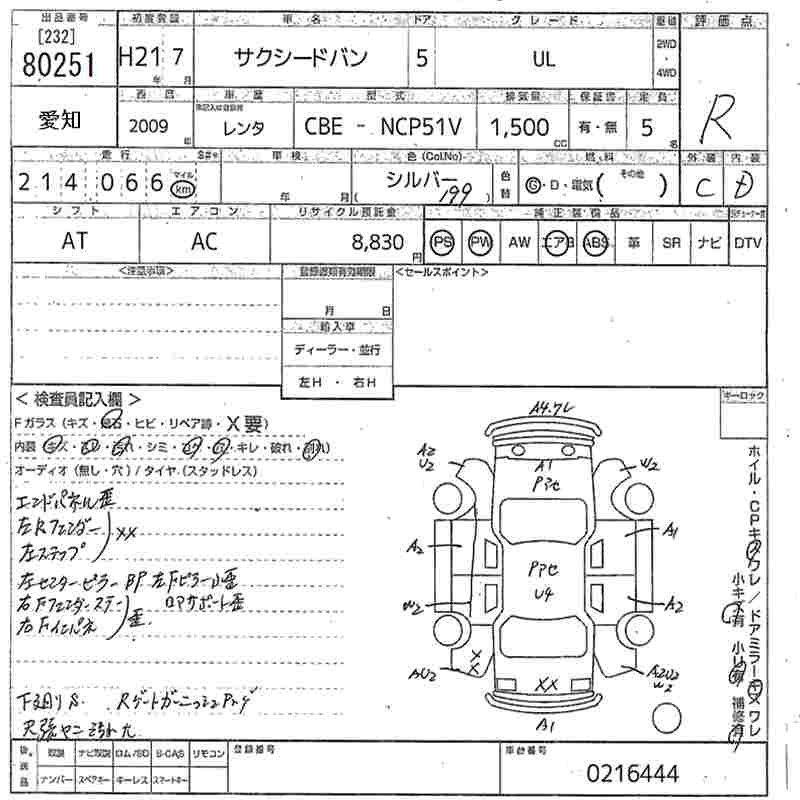 出品番号 初度登録 車名 ドア グレード 駆動 評価点
[232]
80251 H21 7 サクシードバン 5 UL 2WD ・ 4WD R
年 月
愛知 西暦 車歴 型式 排気量 保証書 定員
2009 年 レンタ CBE - NCP51V 1,500 cc 有・無 5 名
走行 車検 色(Col.No) 燃料 外装 内装
214066 マイル km 年 月 シルバー 199 色替 G・D・電気( その他 ) C D
シフト エアコン リサイクル預託金 純正装備品
AT AC 8,830 円 PS PW AW エアB ABS 革 SR ナビ DTV
<注意事項> 登録遅延有効期限 <セールスポイント>
月 日
輸入車
ディーラー・並行
左H ・ 右H
<検査員記入欄> キーロック
Fガラス(キズ・飛石・ヒビ・リペア跡・X要)
内装(キズ・ ・汚れ・シミ・ ・ ・キレ・破れ・割れ)
オーディオ(無し・穴)/タイヤ(スタッドレス)
エンドパネル歪
左Rフェンダー XX
左ステップ
左センターピラーBP 左Fピラー小歪
右Fフェンダーステー ロアサポート歪
右Fインパネ 歪
下廻りS. Rゲートガーニッシュ
天張ヤニ汚れ大
A4.ワレ
A2
U2
A1
Pアセ
W2
A2
A1
Pアセ
U4
W2
A2
AU2
XX
XX
A2U2
W2
A1
ホイル・CPキズワレ/ドアミラーキズワレ
小キズ有 小U有 補修有
後送品 取説 ナビ取説 ロム/SD B-CAS リモコン 登録番号 車台番号
ナンバー スペアキー キーレス スマートキー 0216444